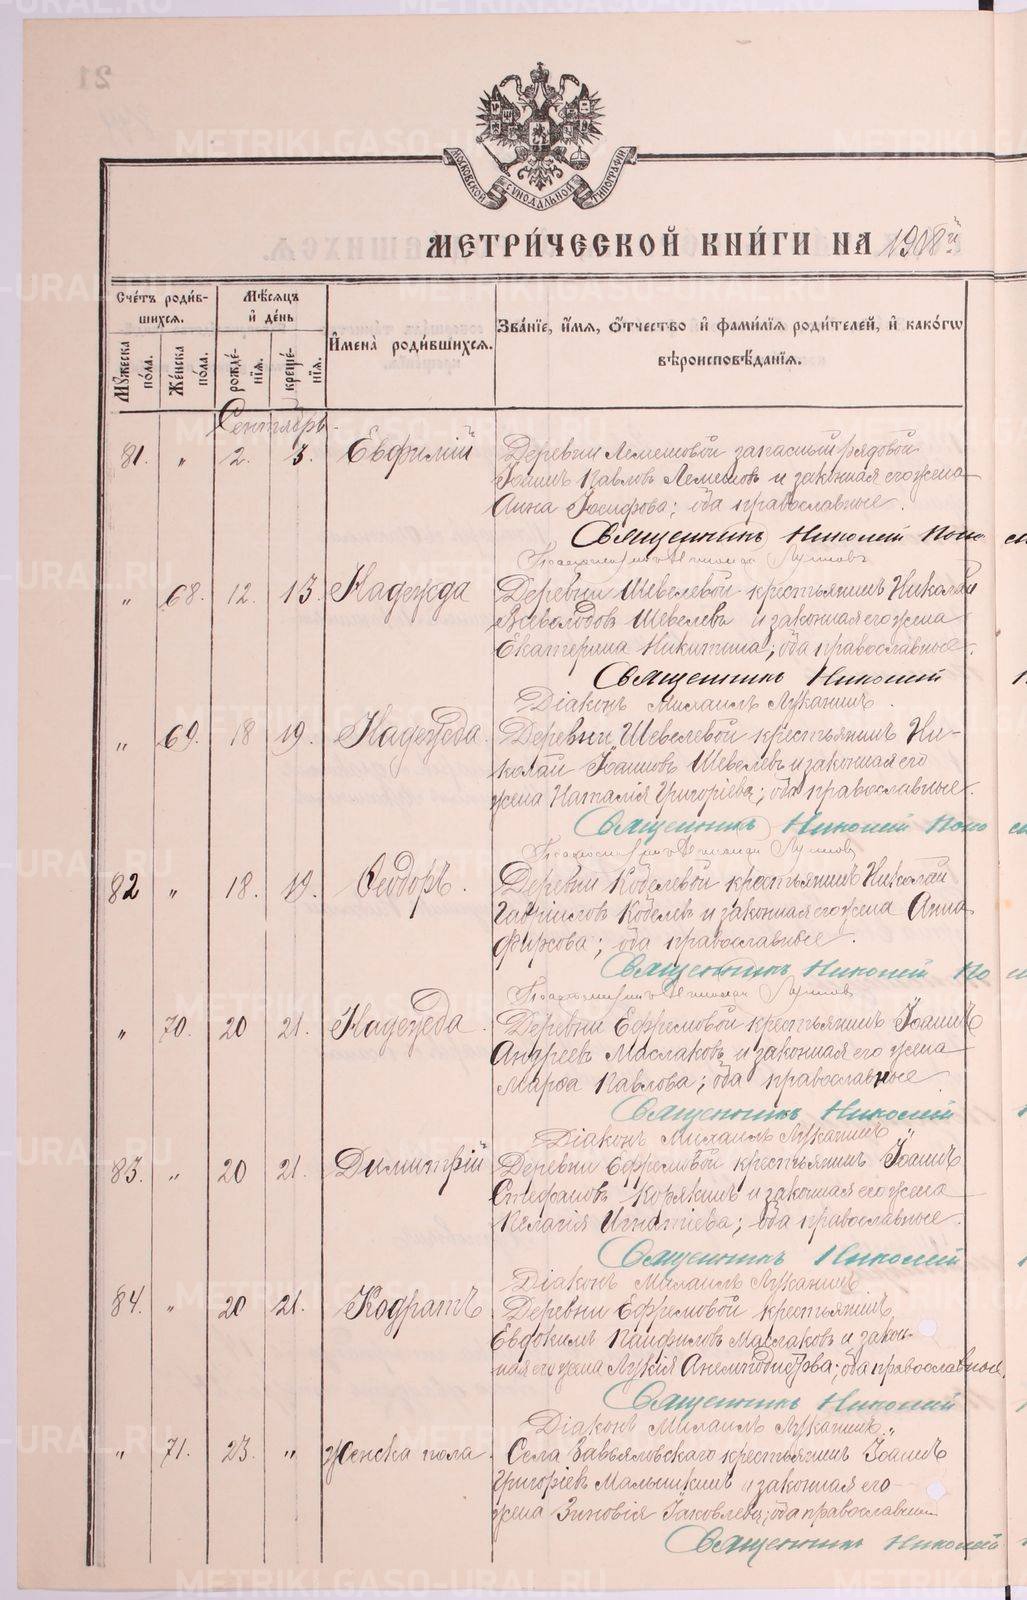 МОСКОВСКОЙ СѴНОДАЛЬНОЙ ТИПОГРАФІИ
МЕТРИ́ЧЕСКОЙ КНИ́ГИ НА 1918й
Сче́тъ роди́в-
шихся.
Мѣ́сяцъ
и҆ де́нь
И҆мена̀ роди́вшихся.
Зва́нїе, и҆́мя, ѻ҆́тчество и҆ фами́лїя роди́телей, и҆ како́гѡ
вѣроисповѣ́данїя.
Мꙋ́жеска по́ла.
Же́нска по́ла.
рожде́-
нїя.
креще́-
нїя.
Сентябрь
81. " 2. 3. Евфимій Деревни Лемешовой запасный рядовой
Іоаннъ Павловъ Лемешовъ и законная его жена
Анна Іосифова; оба православные.
Священникъ Николай Попо
" 68. 12. 13. Надежда Деревни Шевелевой крестьянинъ Николай
Всеволодовъ Шевелевъ и законная его жена
Екатерина Никитина; оба православные.
Священникъ Николай
Діаконъ Михаилъ Луканинъ.
" 69. 18 19. Надежда. Деревни Шевелевой крестьянинъ Ни-
колай Іоанновъ Шевелевъ и законная его
жена Наталія Григоріева; оба православные.
Священникъ Николай Попо
82 " 18. 19. Ѳеодоръ. Деревни Кобелевой крестьянинъ Николай
Гавріиловъ Кобелевъ и законная его жена Анна
Фирсова; оба православные.
Священникъ Николай По
" 70. 20 21. Надежда. Деревни Ефремовой крестьянинъ Іоаннъ
Андреевъ Маслаковъ и законная его жена
Марѳа Павлова; оба православные.
Священникъ Николай
Діаконъ Михаилъ Луканинъ
83. " 20 21. Димитрій Деревни Ефремовой крестьянинъ Іоаннъ
Стефановъ Корякинъ и законная его жена
Пелагія Игнатіева; оба православные.
Священникъ Николай
Діаконъ Михаилъ Луканинъ
84. " 20 21. Кодратъ Деревни Ефремовой крестьянинъ
Евдокимъ Панфиловъ Маслаковъ и закон-
ная его жена Лукія Анемподистова; оба православные.
Священникъ Николай
Діаконъ Михаилъ Луканинъ
" 71. 23. " Женска пола. Села Завьяловскаго крестьянинъ Іоаннъ
Григоріевъ Малышкинъ и законная его
жена Зиновія Іаковлева; оба православныи
Священникъ Николай
METRIKI.GASO-URAL.RU